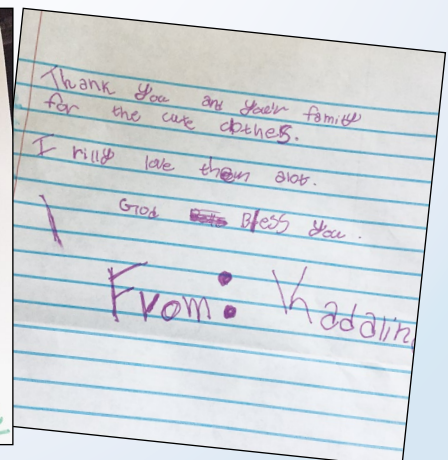 Thank you and your family
for the cute clothes.
I rilly love them alot.
God Bless you.
From: